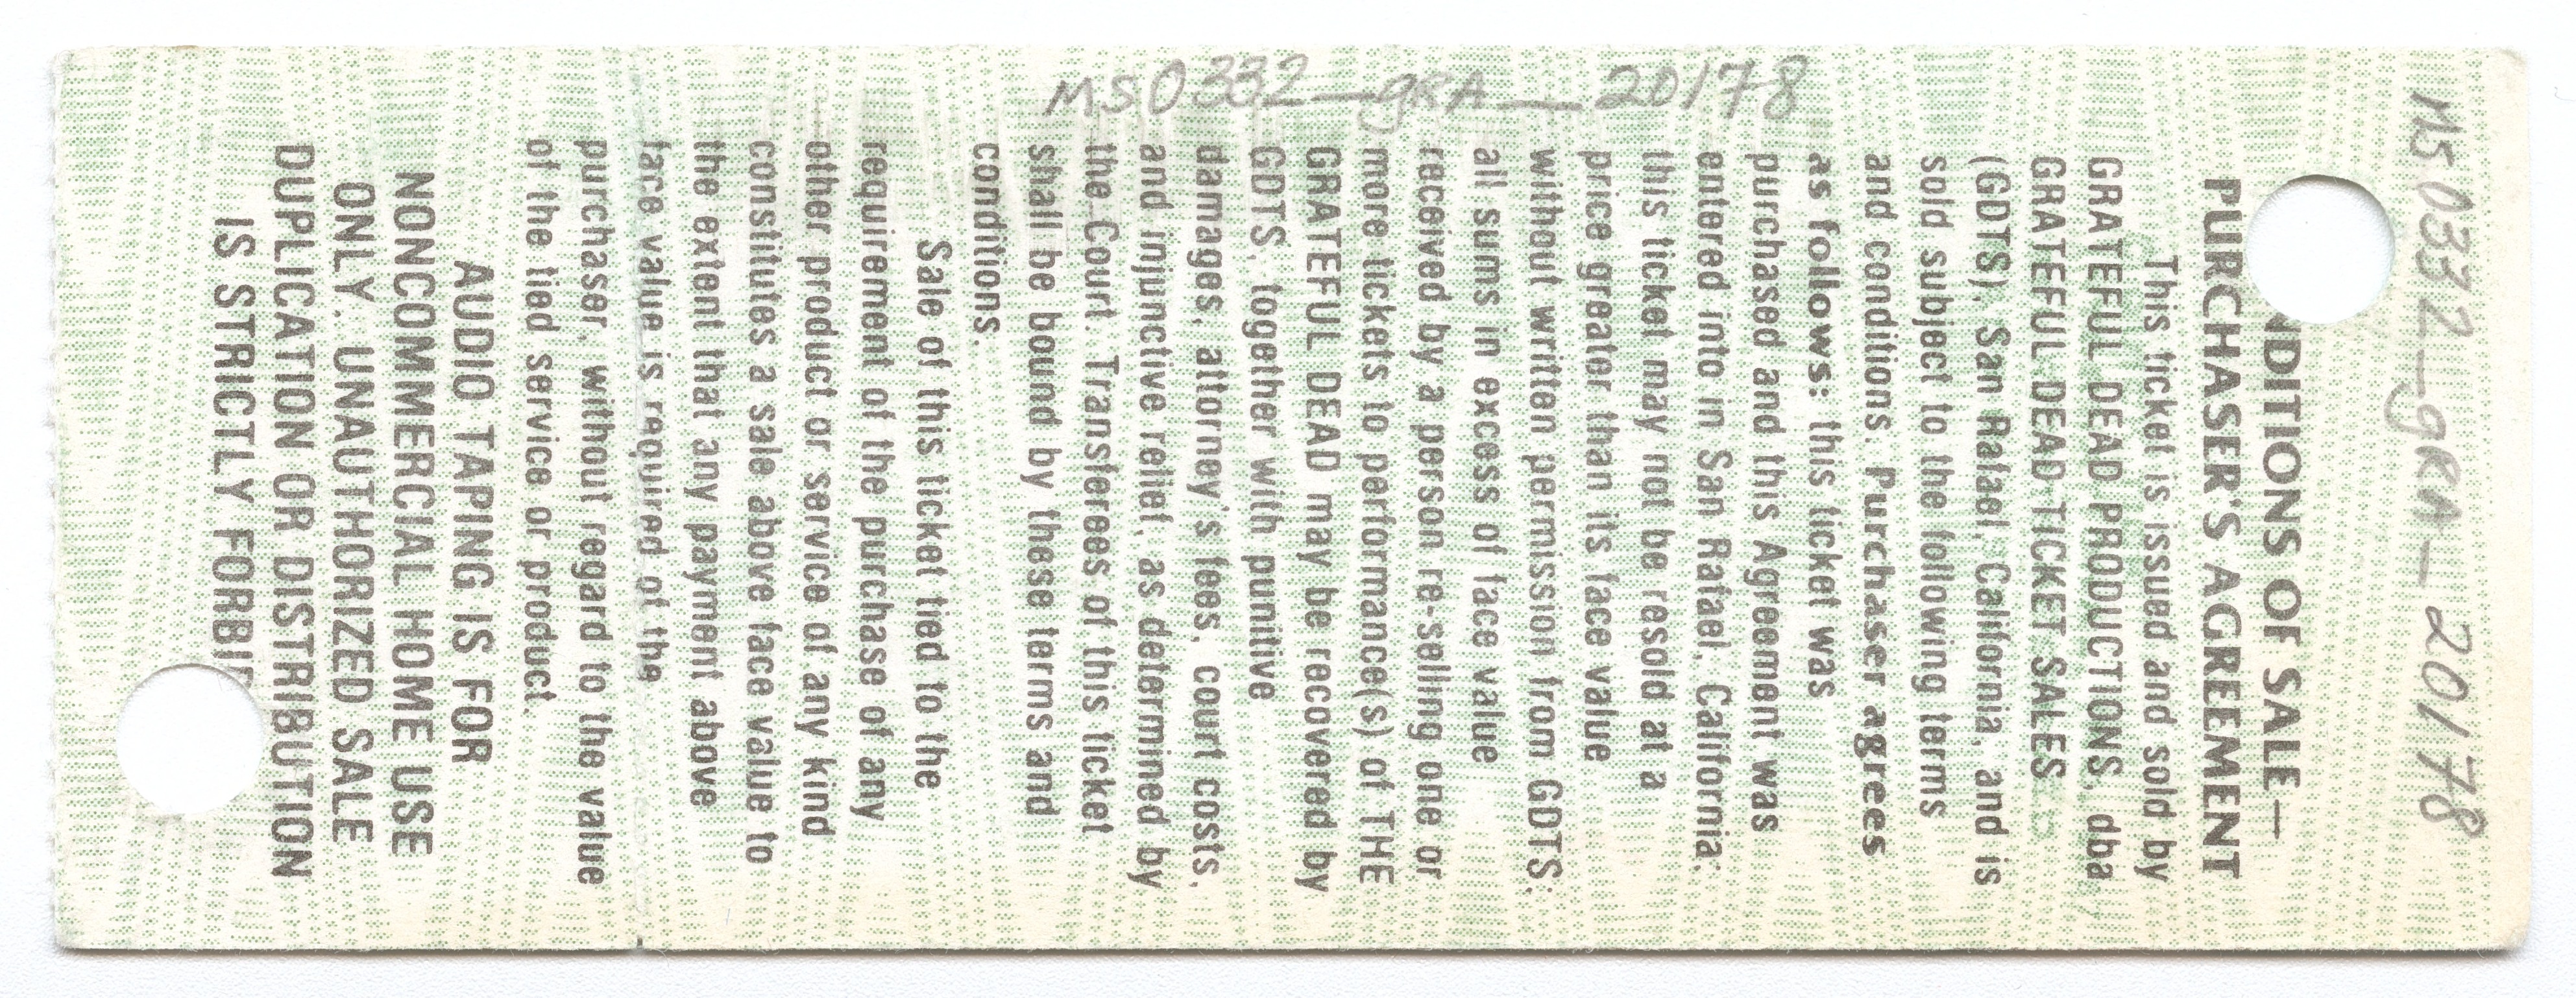 MS0332_gRA_20178
MS0332_gRA_20178
NDITIONS OF SALE—
PURCHASER'S AGREEMENT
This ticket is issued and sold by
GRATEFUL DEAD PRODUCTIONS, dba
GRATEFUL DEAD TICKET SALES
(GDTS), San Rafael, California, and is
sold subject to the following terms
and conditions. Purchaser agrees
as follows: this ticket was
purchased and this Agreement was
entered into in San Rafael, California;
this ticket may not be resold at a
price greater than its face value
without written permission from GDTS;
all sums in excess of face value
received by a person re-selling one or
more tickets to performance(s) of THE
GRATEFUL DEAD may be recovered by
GDTS, together with punitive
damages, attorney's fees, court costs,
and injunctive relief, as determined by
the Court. Transferees of this ticket
shall be bound by these terms and
conditions.
Sale of this ticket tied to the
requirement of the purchase of any
other product or service of any kind
constitutes a sale above face value to
the extent that any payment above
face value is required of the
purchaser, without regard to the value
of the tied service or product.
AUDIO TAPING IS FOR
NONCOMMERCIAL HOME USE
ONLY. UNAUTHORIZED SALE
DUPLICATION OR DISTRIBUTION
IS STRICTLY FORBI